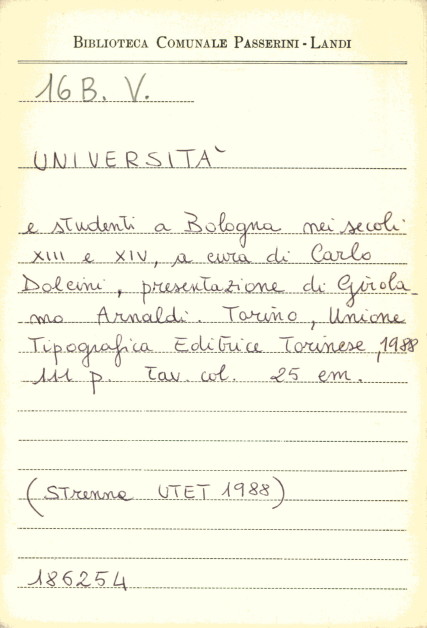 BIBLIOTECA COMUNALE PASSERINI - LANDI
16 B. V.
UNIVERSITÀ
e studenti a Bologna nei secoli
XIII e XIV, a cura di Carlo
Dolcini, presentazione di Girola-
mo Arnaldi. Torino, Unione
Tipografica Editrice Torinese, 1988
111 p. Tav. col. 25 cm.
(Strenna UTET 1988)
186254